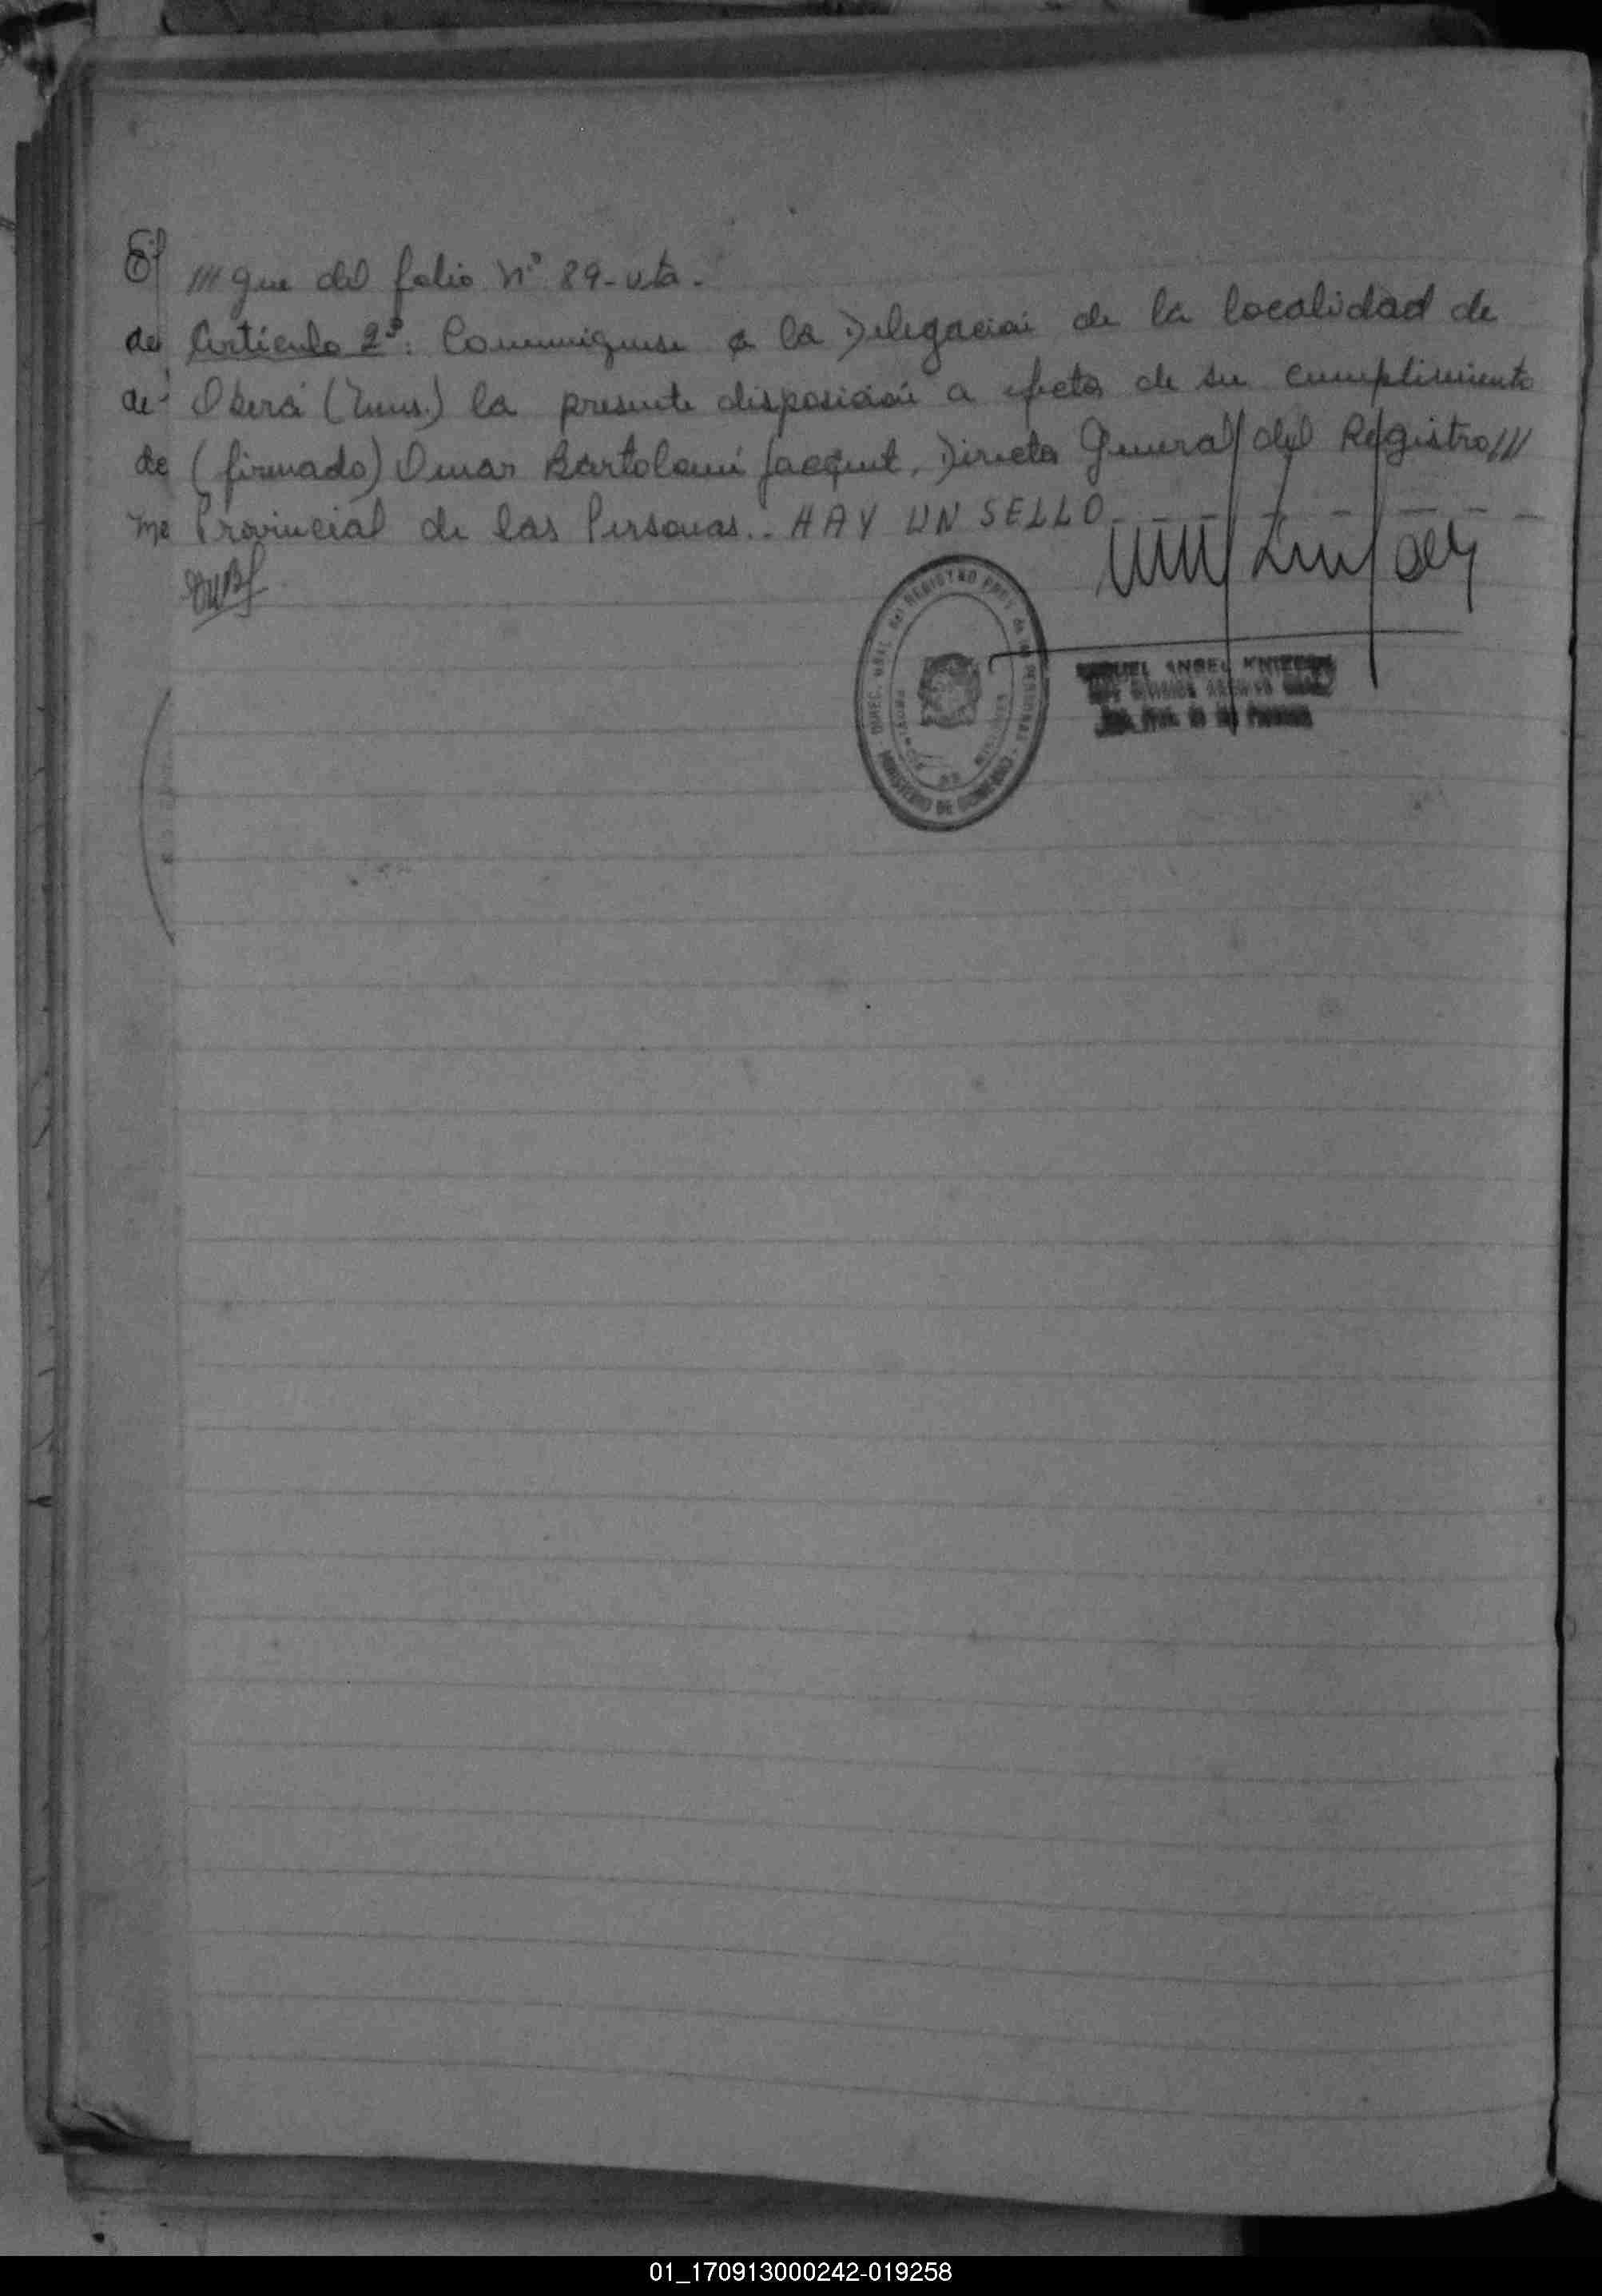 El
/// gue del folio Nº 89-vta.-
de Artículo 2º: Comuníquese a la Delegación de la localidad de
de Oberá (Mnes.) la presente disposición a efectos de su cumplimiento
de (firmado) Omar Bartolomé Jacquet, Director General del Registro///
me Provincial de las Personas.. HAY UN SELLO
DIREC. GRAL. del REGISTRO PROV. de las PERSONAS - MINISTERIO DE GOBIERNO -
PROVINCIA DE MISIONES
MIGUEL ANGEL
Reg. Prov. de las Personas
01_170913000242-019258